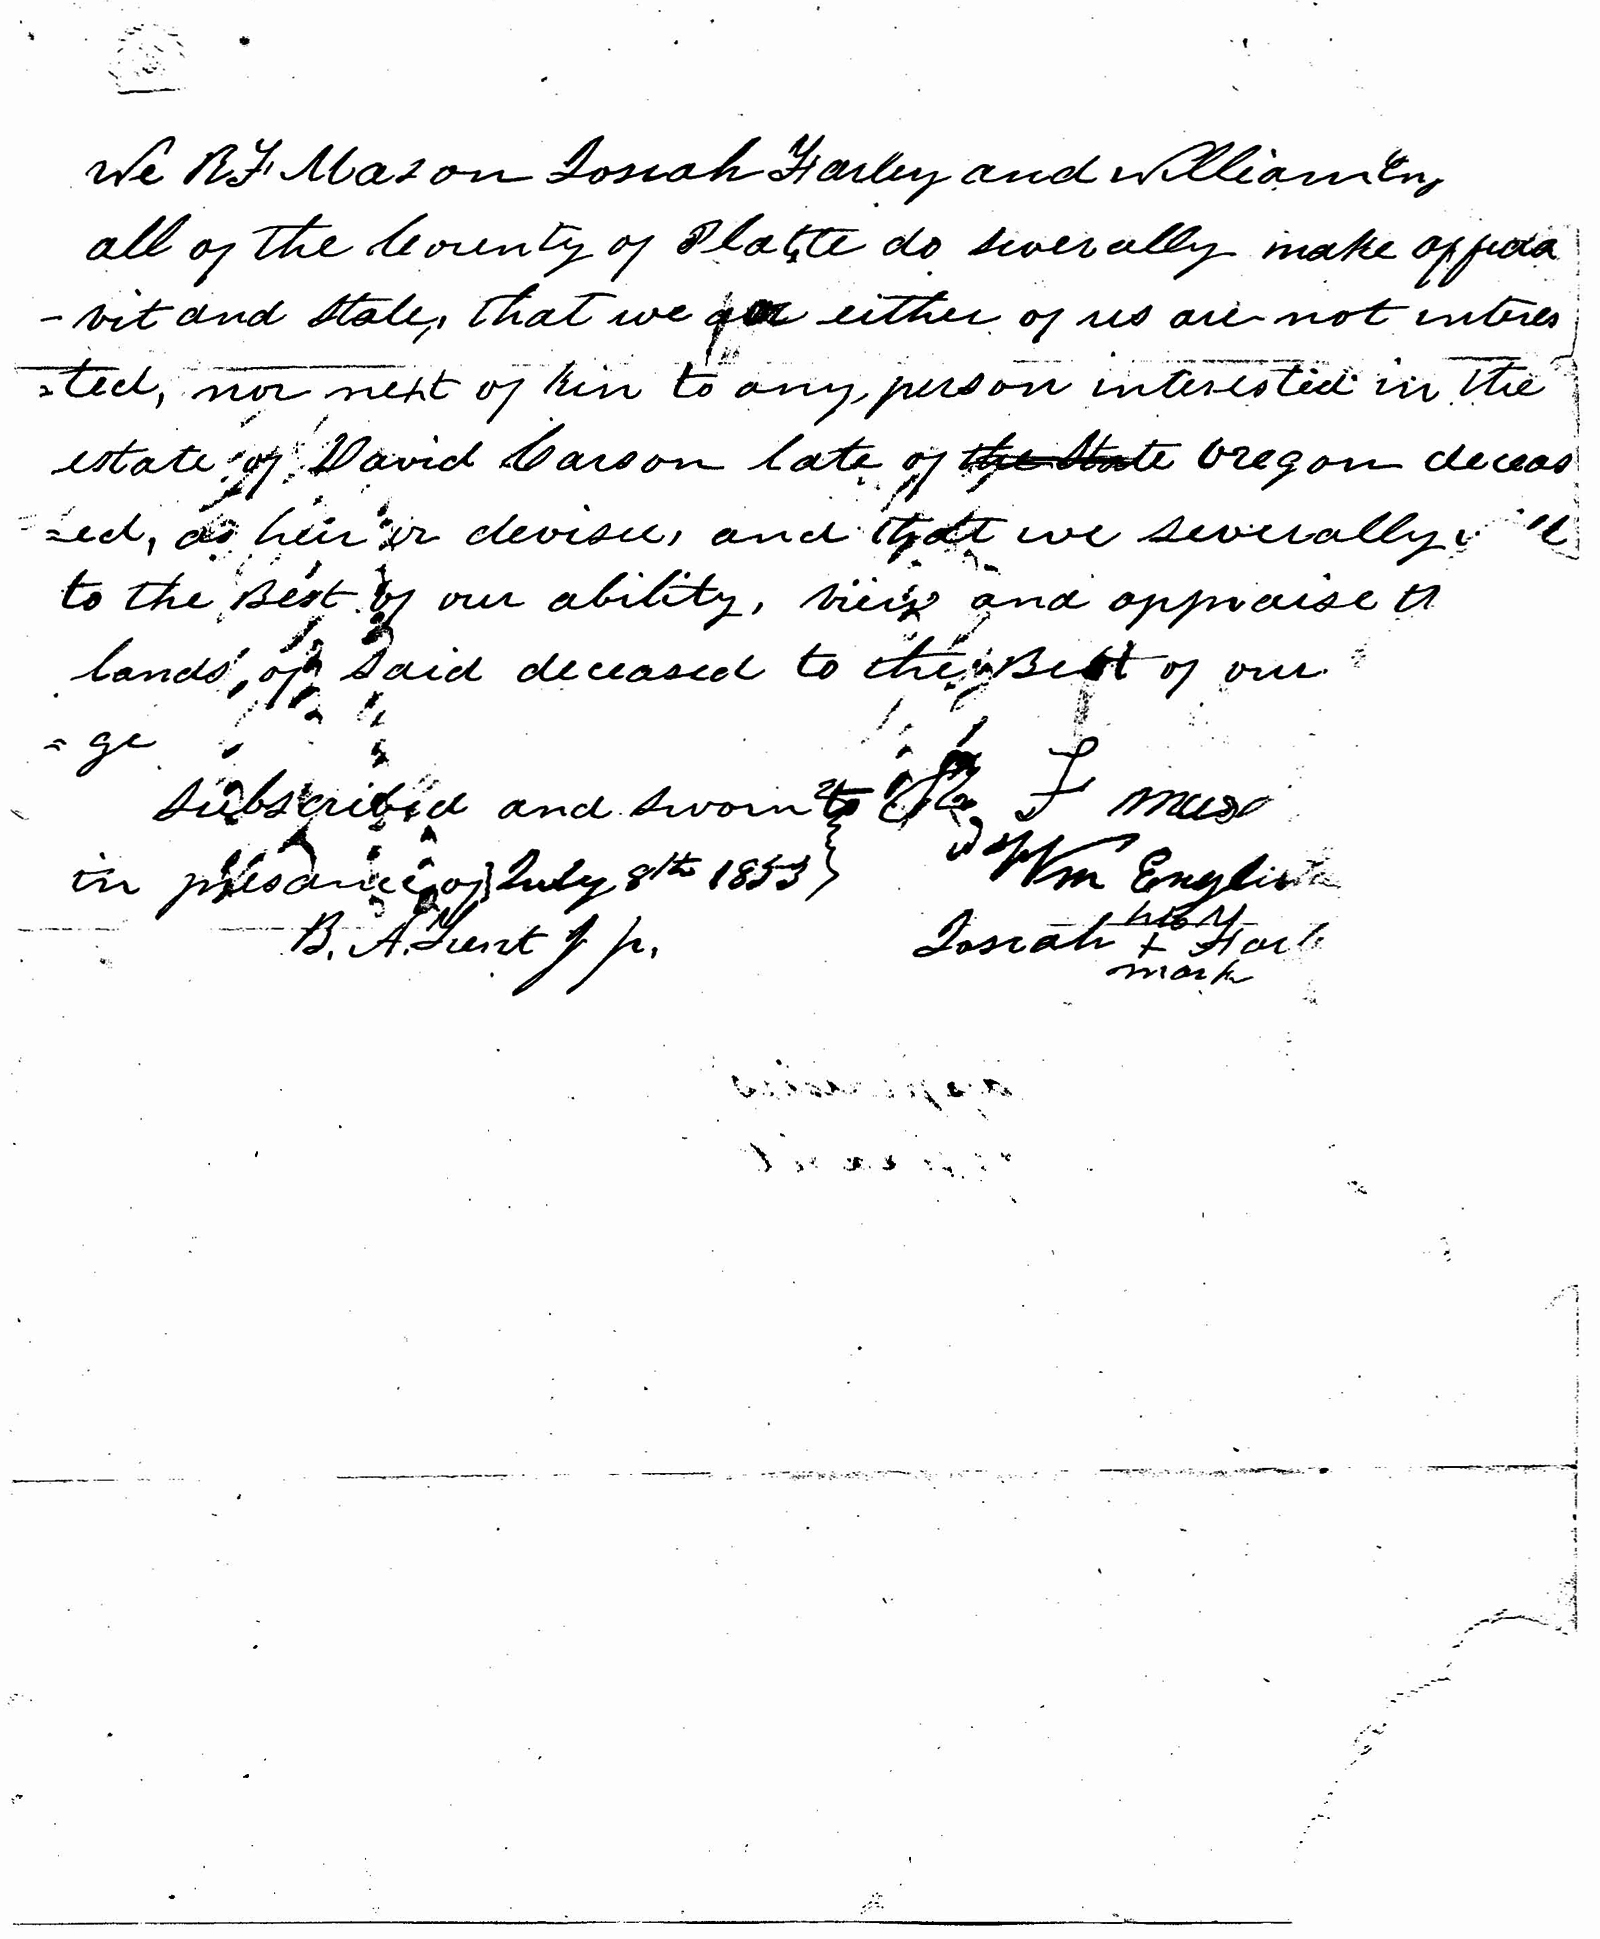 We R F Mason Josiah Farley and William Eng
all of the County of Platte do severally make affida
- vit and state, that we or either of us are not interes
=ted, nor next of kin to any person interested in the
estate of David Carson late of the State Oregon deceas
=ed, as heir or devisee, and that we severally will
to the Best of our ability, view and appraise th
lands, of said deceased to the Best of our
=ge
subscribed and sworn to R F Mas
in presance of July 8th 1853 Wm English
B. A. J p. Josiah his x mark Farl